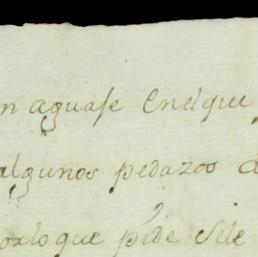 n aguase Enelque
algunos pedazos d
porloque pide sele